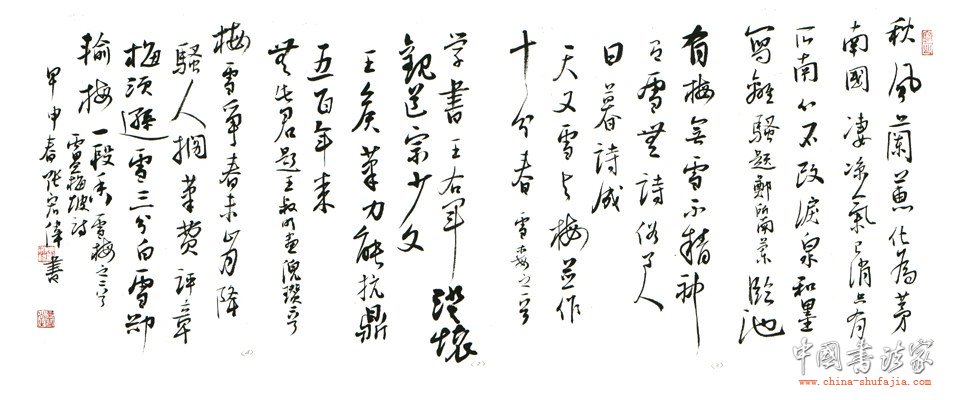 秋風蘭蕙化為茅
南國凄凉氣已消只有
所南心不改淚泉和墨
寫離騷 題鄭所南蘭 臨池
有梅無雪不精神
有雪無詩俗了人
日暮詩成
天又雪与梅並作
十分春 雪梅之一首
学書王右軍 澄懷
觀道宗少文
王侯筆力能抗鼎
五百年来
無此君 題王叔明畫 倪瓚
梅雪爭春未肯降
騷人擱筆費評章
梅須遜雪三分白雪卻
輸梅一段香 雪梅之二首
盧梅坡詩
甲申春 書
中國書法家
www.china-shufajia.com